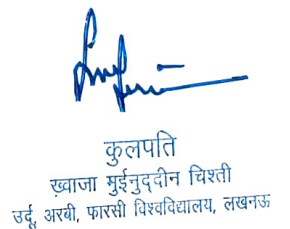 कुलपति
ख़्वाजा मुईनुद्दीन चिश्ती
उर्दू, अरबी, फारसी विश्वविद्यालय, लखनऊ